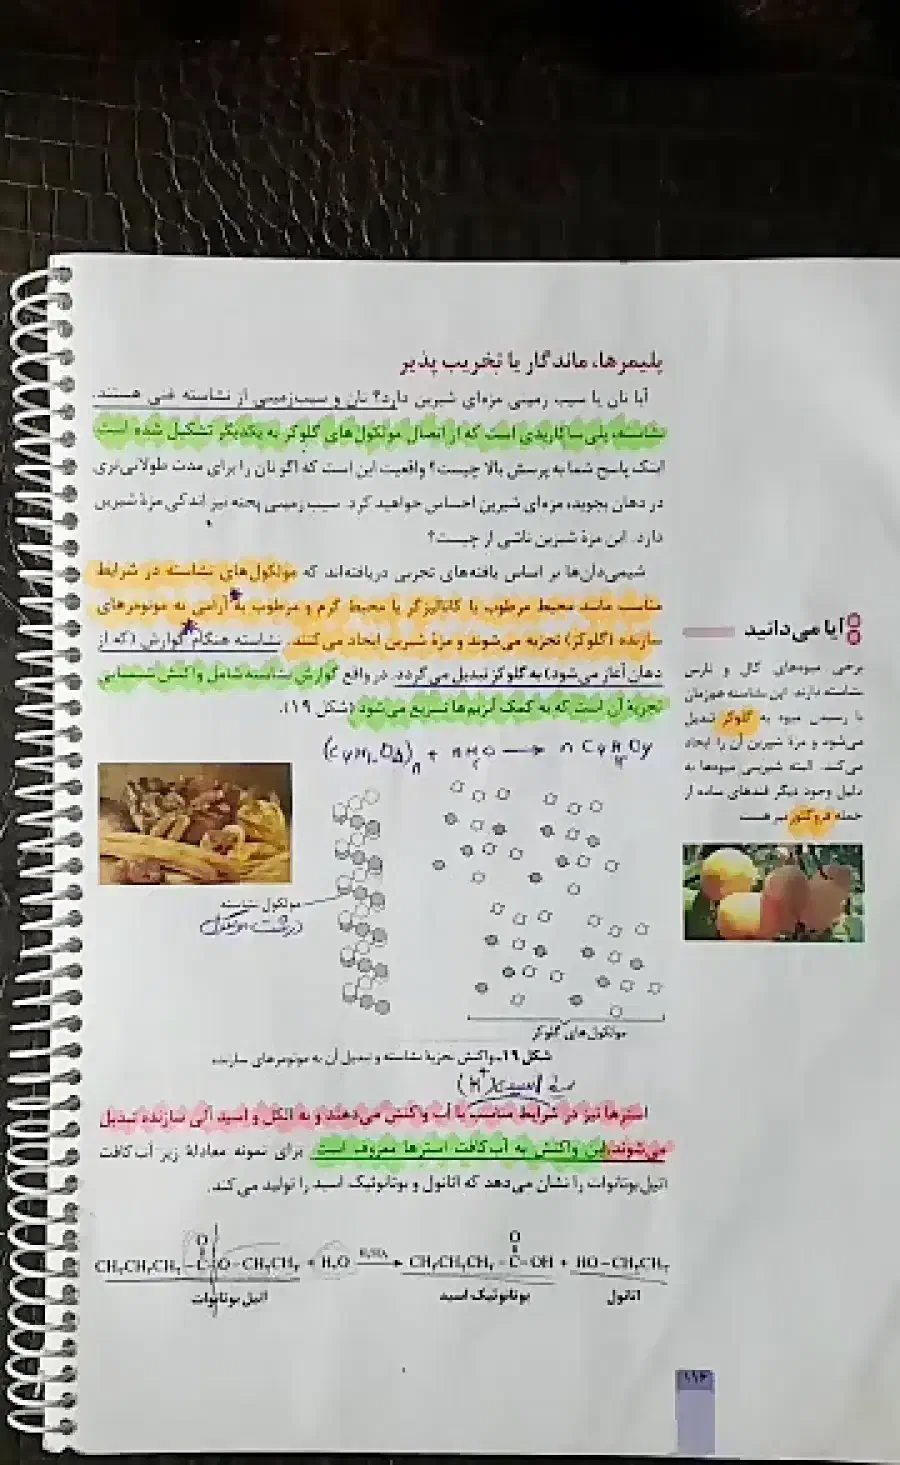 پلیمرها، ماندگار یا تخریب پذیر
آیا نان یا سیب زمینی مزه‌ای شیرین دارد؟ نان و سیب‌زمینی از نشاسته غنی هستند.
نشاسته، پلی‌ساکاریدی است که از اتصال مولکول‌های گلوکز به یکدیگر تشکیل شده است.
اینک پاسخ شما به پرسش بالا چیست؟ واقعیت این است که اگر نان را برای مدت طولانی‌تری
در دهان بجوید، مزه‌ای شیرین احساس خواهید کرد. سیب زمینی پخته نیز اندکی مزهٔ شیرین
دارد. این مزهٔ شیرین ناشی از چیست؟
شیمی‌دان‌ها بر اساس یافته‌های تجربی دریافته‌اند که مولکول‌های نشاسته در شرایط
مناسب مانند محیط مرطوب با کاتالیزگر یا محیط گرم و مرطوب به آرامی به مونومرهای
سازنده (گلوکز) تجزیه می‌شوند و مزهٔ شیرین ایجاد می‌کنند. نشاسته هنگام گوارش (که از
دهان آغاز می‌شود) به گلوکز تبدیل می‌گردد. در واقع گوارش نشاسته شامل واکنش شیمیایی
تجزیهٔ آن است که به کمک آنزیم‌ها تسریع می‌شود (شکل ۱۹).
آیا می‌دانید
برخی میوه‌های کال و نارس
نشاسته دارند. این نشاسته همزمان
با رسیدن میوه به گلوکز تبدیل
می‌شود و مزهٔ شیرین آن را ایجاد
می‌کند. البته شیرینی میوه‌ها به
دلیل وجود دیگر قندهای ساده از
جمله فروکتوز نیز هست.
مولکول نشاسته
درشت مولکول
مولکول‌های گلوکز
شکل ۱۹ـ واکنش تجزیهٔ نشاسته و تبدیل آن به مونومرهای سازنده
(H⁺)
استرها نیز در شرایط مناسب با آب واکنش می‌دهند و به الکل و اسید آلی سازنده تبدیل
می‌شوند. این واکنش به آب‌کافت استرها معروف است. برای نمونه معادلهٔ زیر آب‌کافت
اتیل‌بوتانوات را نشان می‌دهد که اتانول و بوتانوئیک اسید را تولید می‌کند.
O O
CH₃CH₂CH₂–C–O–CH₂CH₃ + H₂O H₂SO₄ → CH₃CH₂CH₂–C–OH + HO–CH₂CH₃
اتیل بوتانوات بوتانوئیک اسید اتانول
۱۱۶